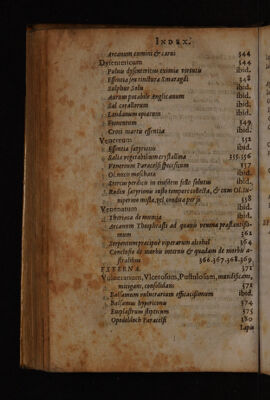 INDEX.
Arcanum cumini & carui 544
Dysentericum 544
Pulvis dysentericus eximiæ virtutis ibid.
Essentia seu tinctura Smaragdi 548
Sulphur Solis ibid.
Aurum potabile Anglicanum ibid.
Sal corallorum ibid.
Laudanum opiatum ibid.
Fomentum 549
Croci martis essentia ibid.
Venereum 552
Essentia satyrionis ibid.
Salia vegetabilium crystallina 355.356
Venereum Paracelsi specificum 357
Ol. nucis moschatæ ibid.
Stercus perdicis in eiusdem felle solutus ibid.
Radix satyrionis iusto tempore collecta, & cum Ol. Iu-
nipero mista, vel condita per se 358
Venenatum ibid.
Theriaca de mumia ibid.
Arcanum Theophrasti ad quævis venena præstantissi-
mum 362
Serpentum præcipuè viperarum alcohol 364
Conclusio de morbis internis & quædam de morbis a-
stralibus 366.367.368.369
EXTERNA. 371
Vulnerarium, Vlcerosum, Pustulosum, mundificans,
mitigans, consolidans 372
Balsamum vulnerarium efficacissimum ibid.
Balsamus hypericonis 374
Emplastrum stipticum 375
Opodeldoch Paracelsi 380
Lapis